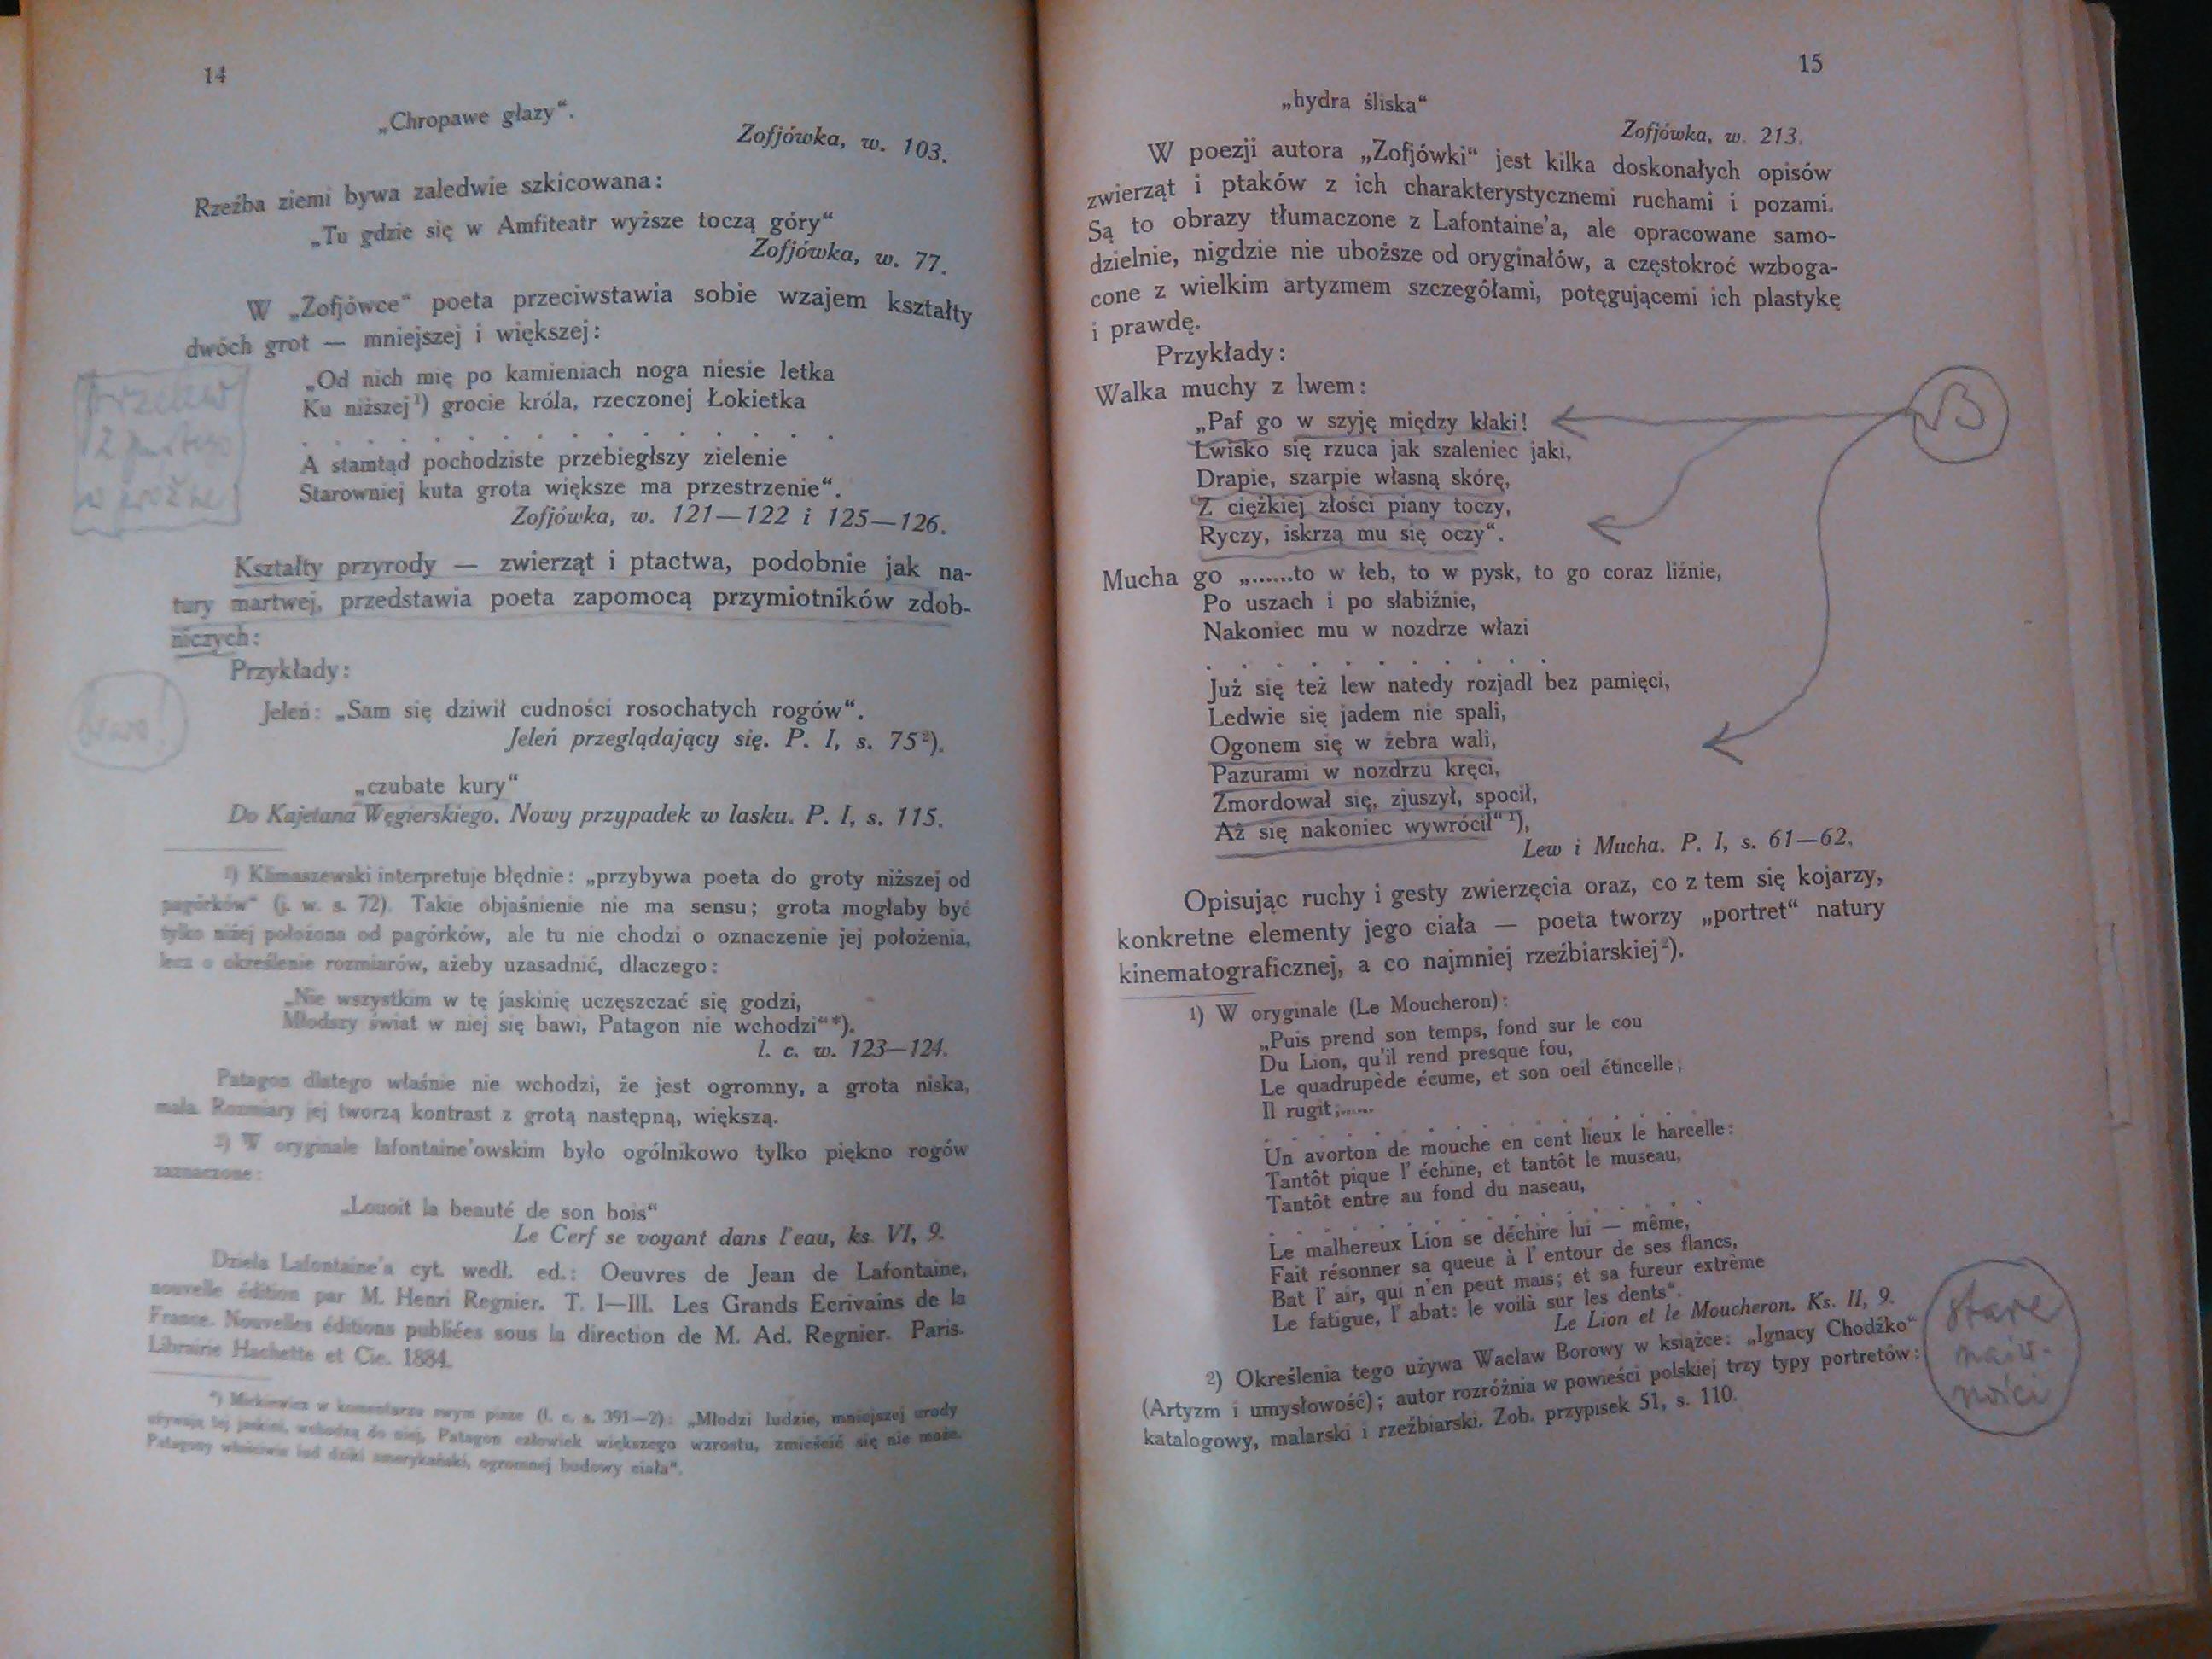 14
„Chropawe głazy“.
Zofjówka, w. 103.
Rzeźba ziemi bywa zaledwie szkicowana:
„Tu gdzie się w Amfiteatr wyższe toczą góry“
Zofjówka, w. 77.
W „Zofjówce“ poeta przeciwstawia sobie wzajem kształty
dwóch grot — mniejszej i większej:
„Od nich mię po kamieniach noga niesie letka
Ku niższej¹) grocie króla, rzeczonej Łokietka
. . . . . . . . . . . . .
A stamtąd pochodziste przebiegłszy zielenie
Starowniej kuta grota większe ma przestrzenie“.
Zofjówka, w. 121—122 i 125—126.
Kształty przyrody — zwierząt i ptactwa, podobnie jak na-
tury martwej, przedstawia poeta zapomocą przymiotników zdob-
niczych:
Przykłady:
brawo!
Jeleń: „Sam się dziwił cudności rosochatych rogów“.
Jeleń przeglądający się. P. I, s. 75²).
„czubate kury“
Do Kajetana Węgierskiego. Nowy przypadek w lasku. P. I, s. 115.
¹) Klimaszewski interpretuje błędnie: „przybywa poeta do groty niższej od
pagórków“ (j. w. s. 72). Takie objaśnienie nie ma sensu; grota mogłaby być
tylko niżej położona od pagórków, ale tu nie chodzi o oznaczenie jej położenia,
lecz o określenie rozmiarów, ażeby uzasadnić, dlaczego:
„Nie wszystkim w tę jaskinię uczęszczać się godzi,
Młodszy świat w niej się bawi, Patagon nie wchodzi“*).
l. c. w. 123—124.
Patagon dlatego właśnie nie wchodzi, że jest ogromny, a grota niska,
mała. Rozmiary jej tworzą kontrast z grotą następną, większą.
²) W oryginale lafontaine'owskim było ogólnikowo tylko piękno rogów
zaznaczone:
„Louoit la beauté de son bois“
Le Cerf se voyant dans l'eau, ks. VI, 9.
Dzieła Lafontaine'a cyt. wedł. ed.: Oeuvres de Jean de Lafontaine,
nouvelle édition par M. Henri Regnier. T. I—III. Les Grands Ecrivains de la
France. Nouvelles éditions publiées sous la direction de M. Ad. Regnier. Paris.
Librairie Hachette et Cie. 1884.
*) Mickiewicz w komentarzu swym pisze (l. c. s. 391—2): „Młodzi ludzie, mniejszej urody
używają tej jaskini, wchodzą do niej, Patagon człowiek większego wzrostu, zmieścić się nie może.
Patagony właściwie lud dziki amerykański, ogromnej budowy ciała“.
15
„hydra śliska“
Zofjówka, w. 213.
W poezji autora „Zofjówki“ jest kilka doskonałych opisów
zwierząt i ptaków z ich charakterystycznemi ruchami i pozami.
Są to obrazy tłumaczone z Lafontaine'a, ale opracowane samo-
dzielnie, nigdzie nie uboższe od oryginałów, a częstokroć wzboga-
cone z wielkim artyzmem szczegółami, potęgującemi ich plastykę
i prawdę.
Przykłady:
Walka muchy z lwem:
„Paf go w szyję między kłaki!
Lwisko się rzuca jak szaleniec jaki,
Drapie, szarpie własną skórę,
Z ciężkiej złości piany toczy,
Ryczy, iskrzą mu się oczy“.
Mucha go „......to w łeb, to w pysk, to go coraz liźnie,
Po uszach i po słabiźnie,
Nakoniec mu w nozdrze włazi
. . . . . . . . . . .
Już się też lew natedy rozjadł bez pamięci,
Ledwie się jadem nie spali,
Ogonem się w żebra wali,
Pazurami w nozdrzu kręci,
Zmordował się, zjuszył, spocił,
Aż się nakoniec wywrócił“¹),
Lew i Mucha. P. I, s. 61—62.
Opisując ruchy i gesty zwierzęcia oraz, co z tem się kojarzy,
konkretne elementy jego ciała — poeta tworzy „portret“ natury
kinematograficznej, a co najmniej rzeźbiarskiej²).
¹) W oryginale (Le Moucheron):
„Puis prend son temps, fond sur le cou
Du Lion, qu'il rend presque fou,
Le quadrupède écume, et son oeil étincelle;
Il rugit;......
. . . . . . . . . . .
Un avorton de mouche en cent lieux le harcelle:
Tantôt pique l' échine, et tantôt le museau,
Tantôt entre au fond du naseau,
. . . . . . . . . . .
Le malhereux Lion se déchire lui — même,
Fait résonner sa queue à l' entour de ses flancs,
Bat l' air, qui n'en peut mais; et sa fureur extrème
Le fatigue, l' abat: le voilà sur les dents“.
Le Lion et le Moucheron. Ks. II, 9.
²) Określenia tego używa Wacław Borowy w książce: „Ignacy Chodźko“
(Artyzm i umysłowość); autor rozróżnia w powieści polskiej trzy typy portretów:
katalogowy, malarski i rzeźbiarski. Zob. przypisek 51, s. 110.
stare
naiw-
ności